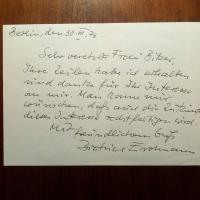 Berlin, den 30.VI.73
Sehr verehrte Frau Biber,
Ihre Zeilen habe ich erhalten
und danke für Ihr Interesse
an mir. Man kann nur
wünschen, daß auch die Zukunft
dieses Interesse rechtfertigen wird.
Mit
freundlichem Gruß